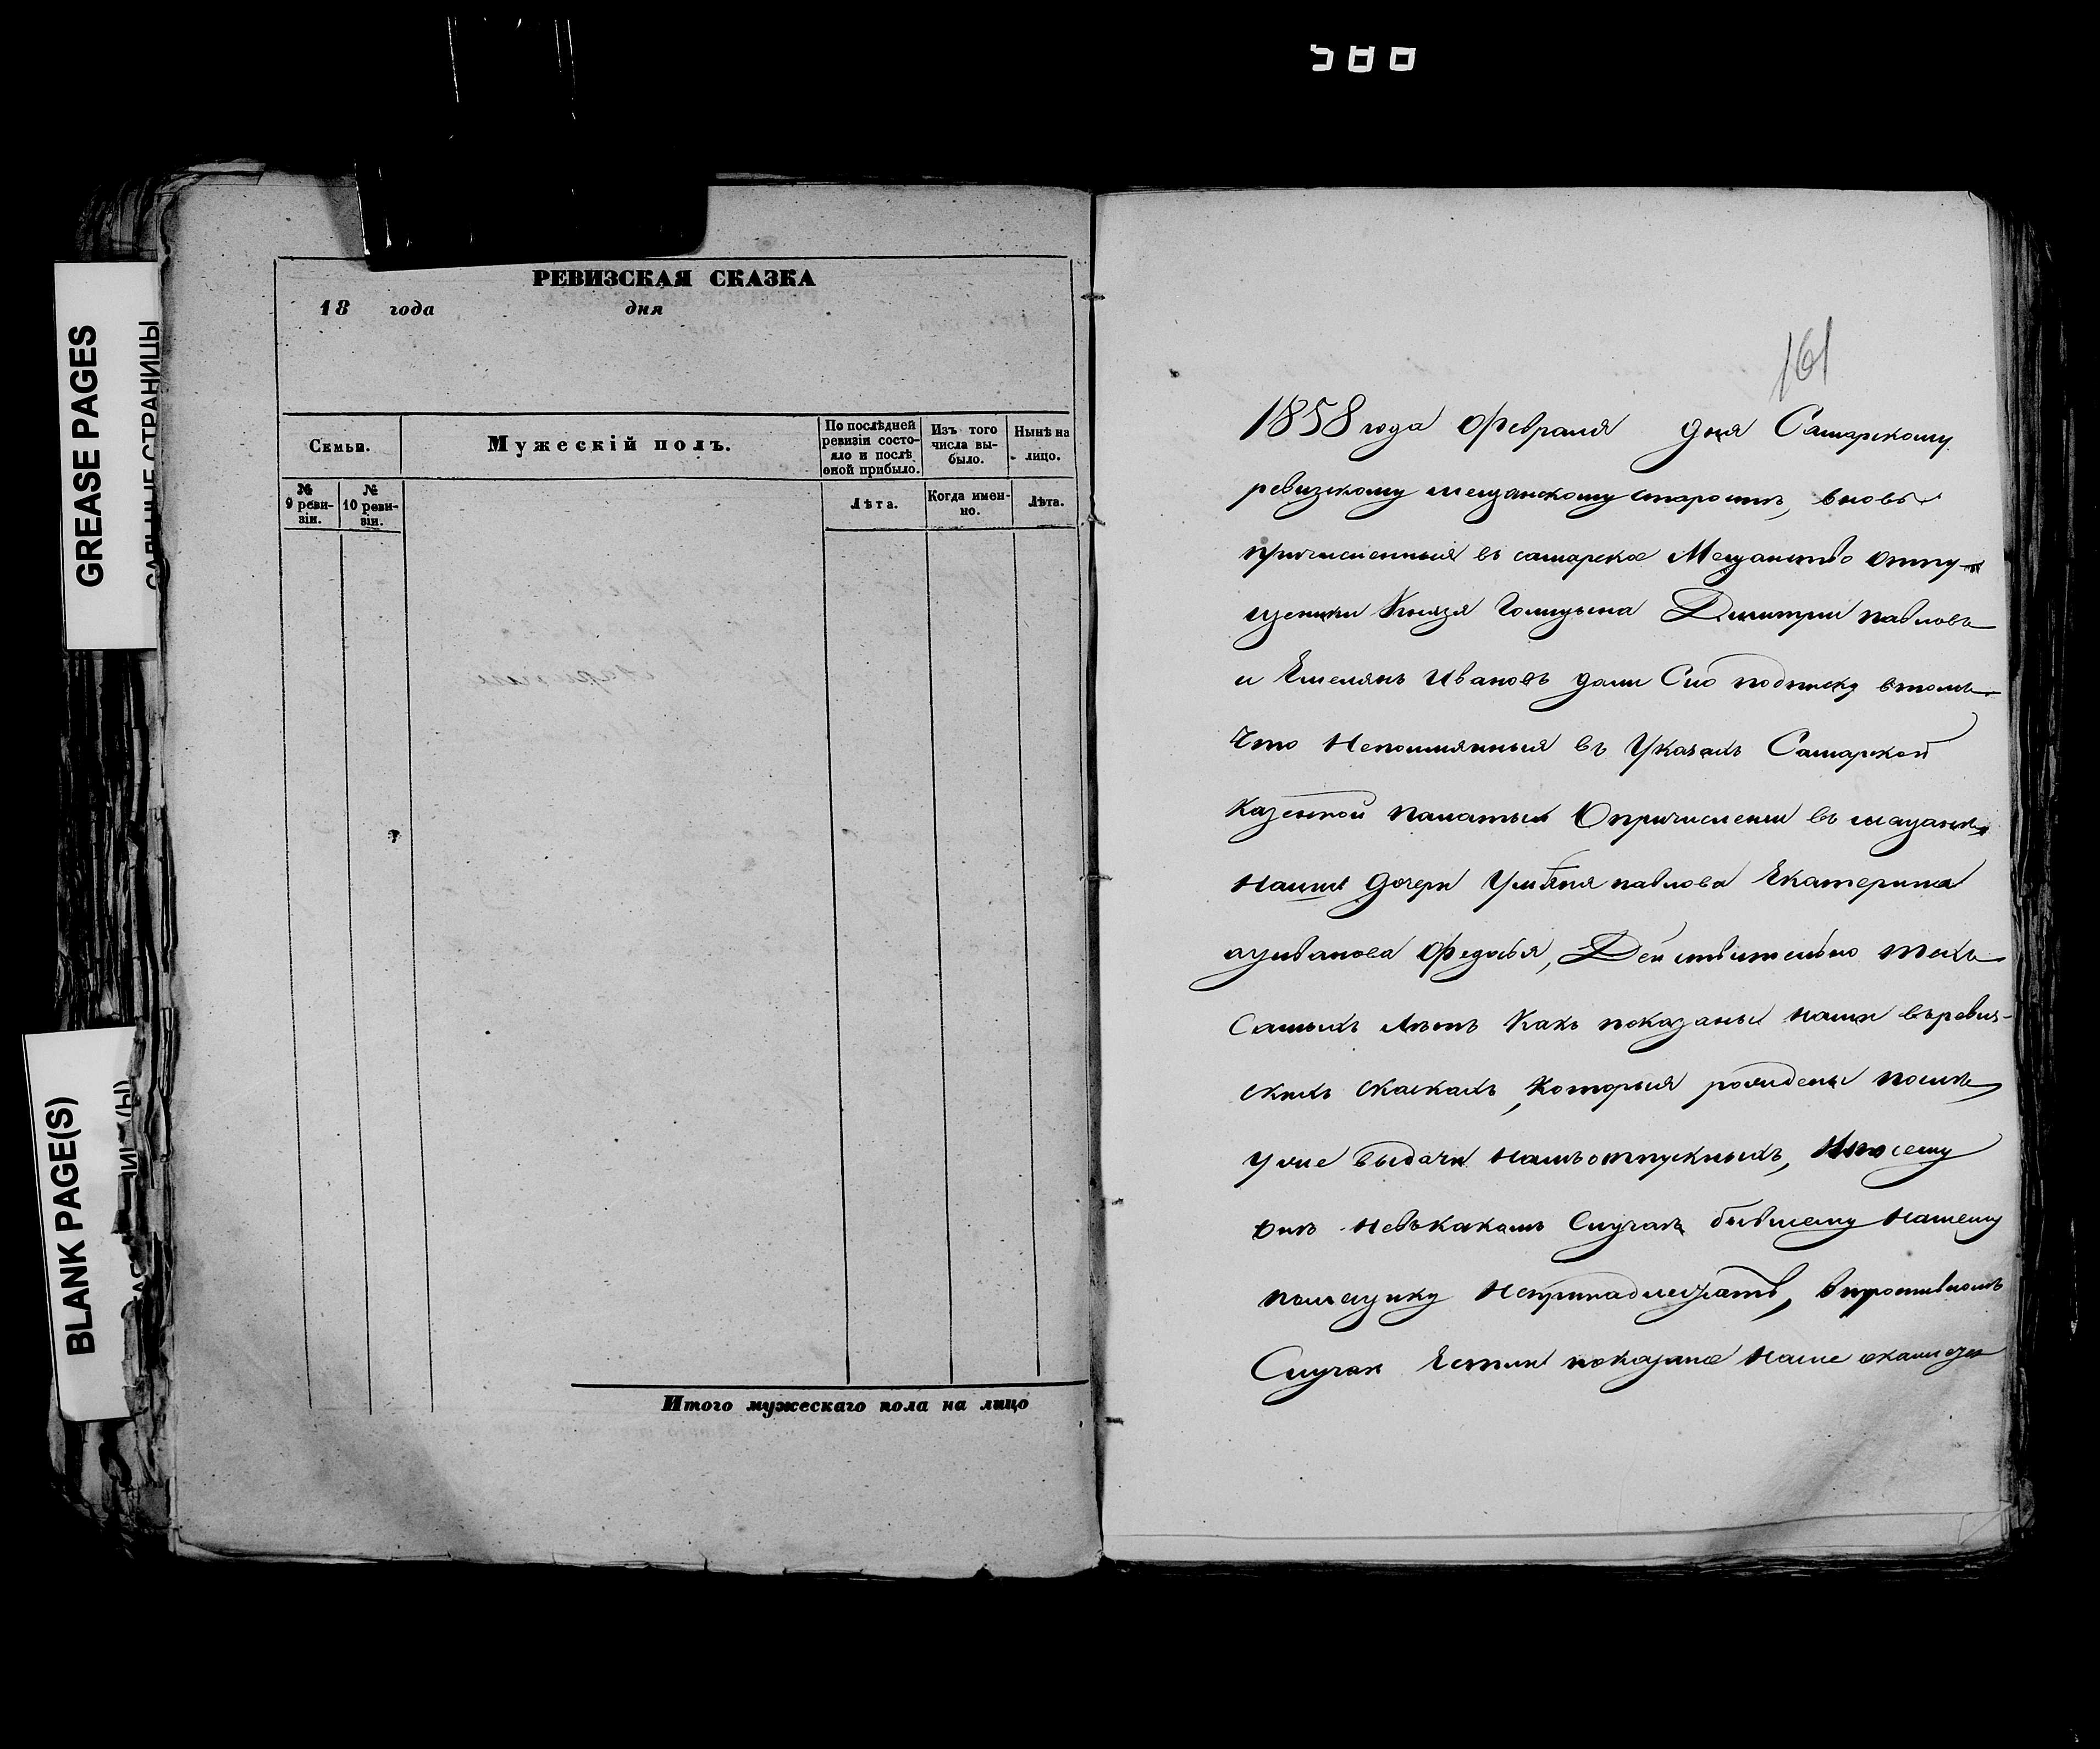 580
GREASE PAGES
BLANK PAGE(S)
РЕВИЗСКАЯ СКАЗКА
18 года дня
Семьи.
Мужескій полъ.
По послѣдней ревизіи состояло и послѣ оной прибыло.
Изъ того числа выбыло.
Нынѣ на лицо.
№ 9 ревизіи.
№ 10 ревизіи.
Лѣта.
Когда именно.
Лѣта.
Итого мужескаго пола на лицо
161
1858 года Февраля дня Самарскому
ревизскому мещанскому старостѣ, вновь
причисленныя въ самарское Мещанство отпу-
щеники Князя Голицына Димитри павловъ
и Емелянъ Ивановъ дали Сію подписку втомъ
Что Непомянныя въ Указахъ Самарской
Казенной палаты Опричислении въ мещане
Наши дочери Ульяния павлова Екатерина
Федосья, Действительно техъ
Самыхъ Лѣтъ Какъ показаны нами въ ревиз-
скихъ скаскахъ, Которыя рождены после
Уже выдачи намъ отпускныхъ, Ипосему
Онѣ Невъкакомъ Случаѣ бывшему Нашему
помещику Непринадлежатъ, Впротивномъ
Случаи Естли показание Наше окажется